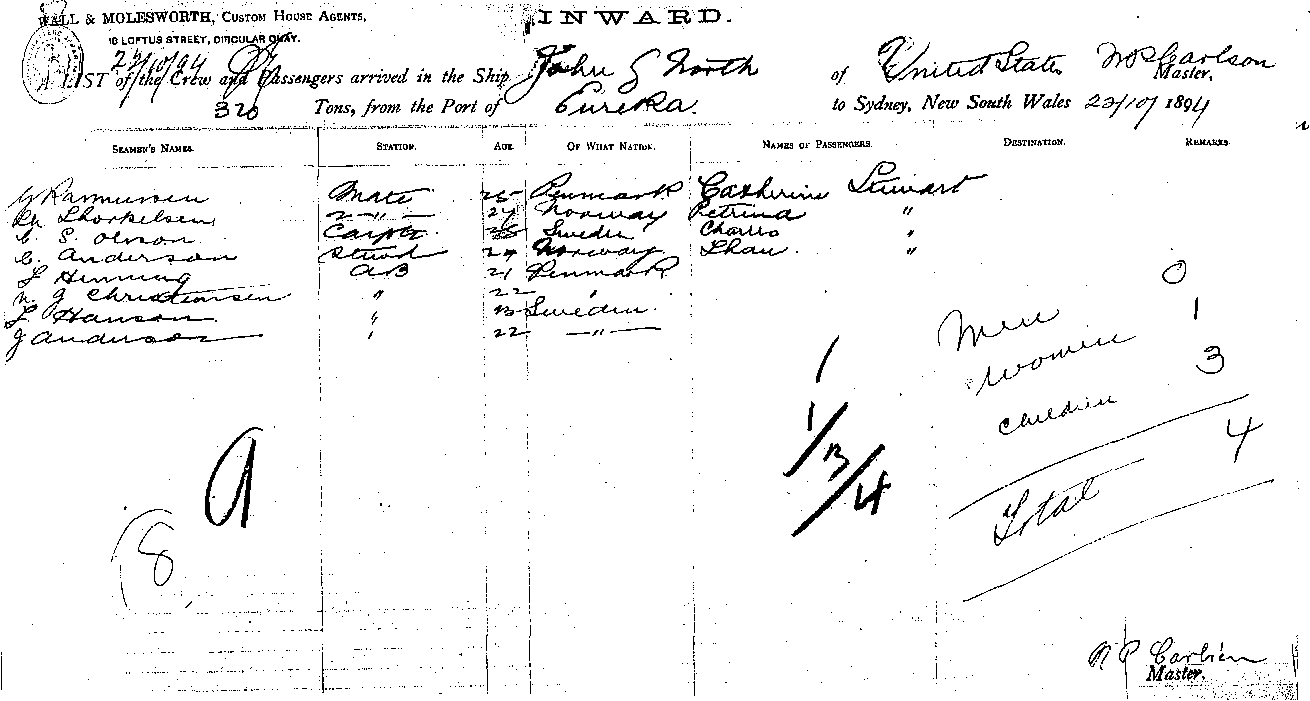 WALL & MOLESWORTH, CUSTOM HOUSE AGENTS,
INWARD.
16 LOFTUS STREET, CIRCULAR QUAY.
22/10/94
A LIST of the Crew and Passengers arrived in the Ship John G North of United States N P Carlson Master,
320 Tons, from the Port of Eureka. to Sydney, New South Wales 22/10/ 1894
SEAMEN'S NAMES. STATION. AGE. OF WHAT NATION. NAMES OF PASSENGERS. DESTINATION. REMARKS.
Rasmussen Mate 25 Denmark Catherine Stewart
Thorkelsen 2 - " - 24 Norway Petrina "
C. S. Olsson Carptr 28 Sweden Charles "
C. Anderson Stewd 24 Norway Thau "
L Henning AB 21 Denmark
N. J Christensen " 22 "
L Hanson " 23 Sweden
J Anderson " 22 - " -
Men 0
Women 1
Children 3
Total 4
1
1/3/4
9
(8
N P Carlsen
Master.